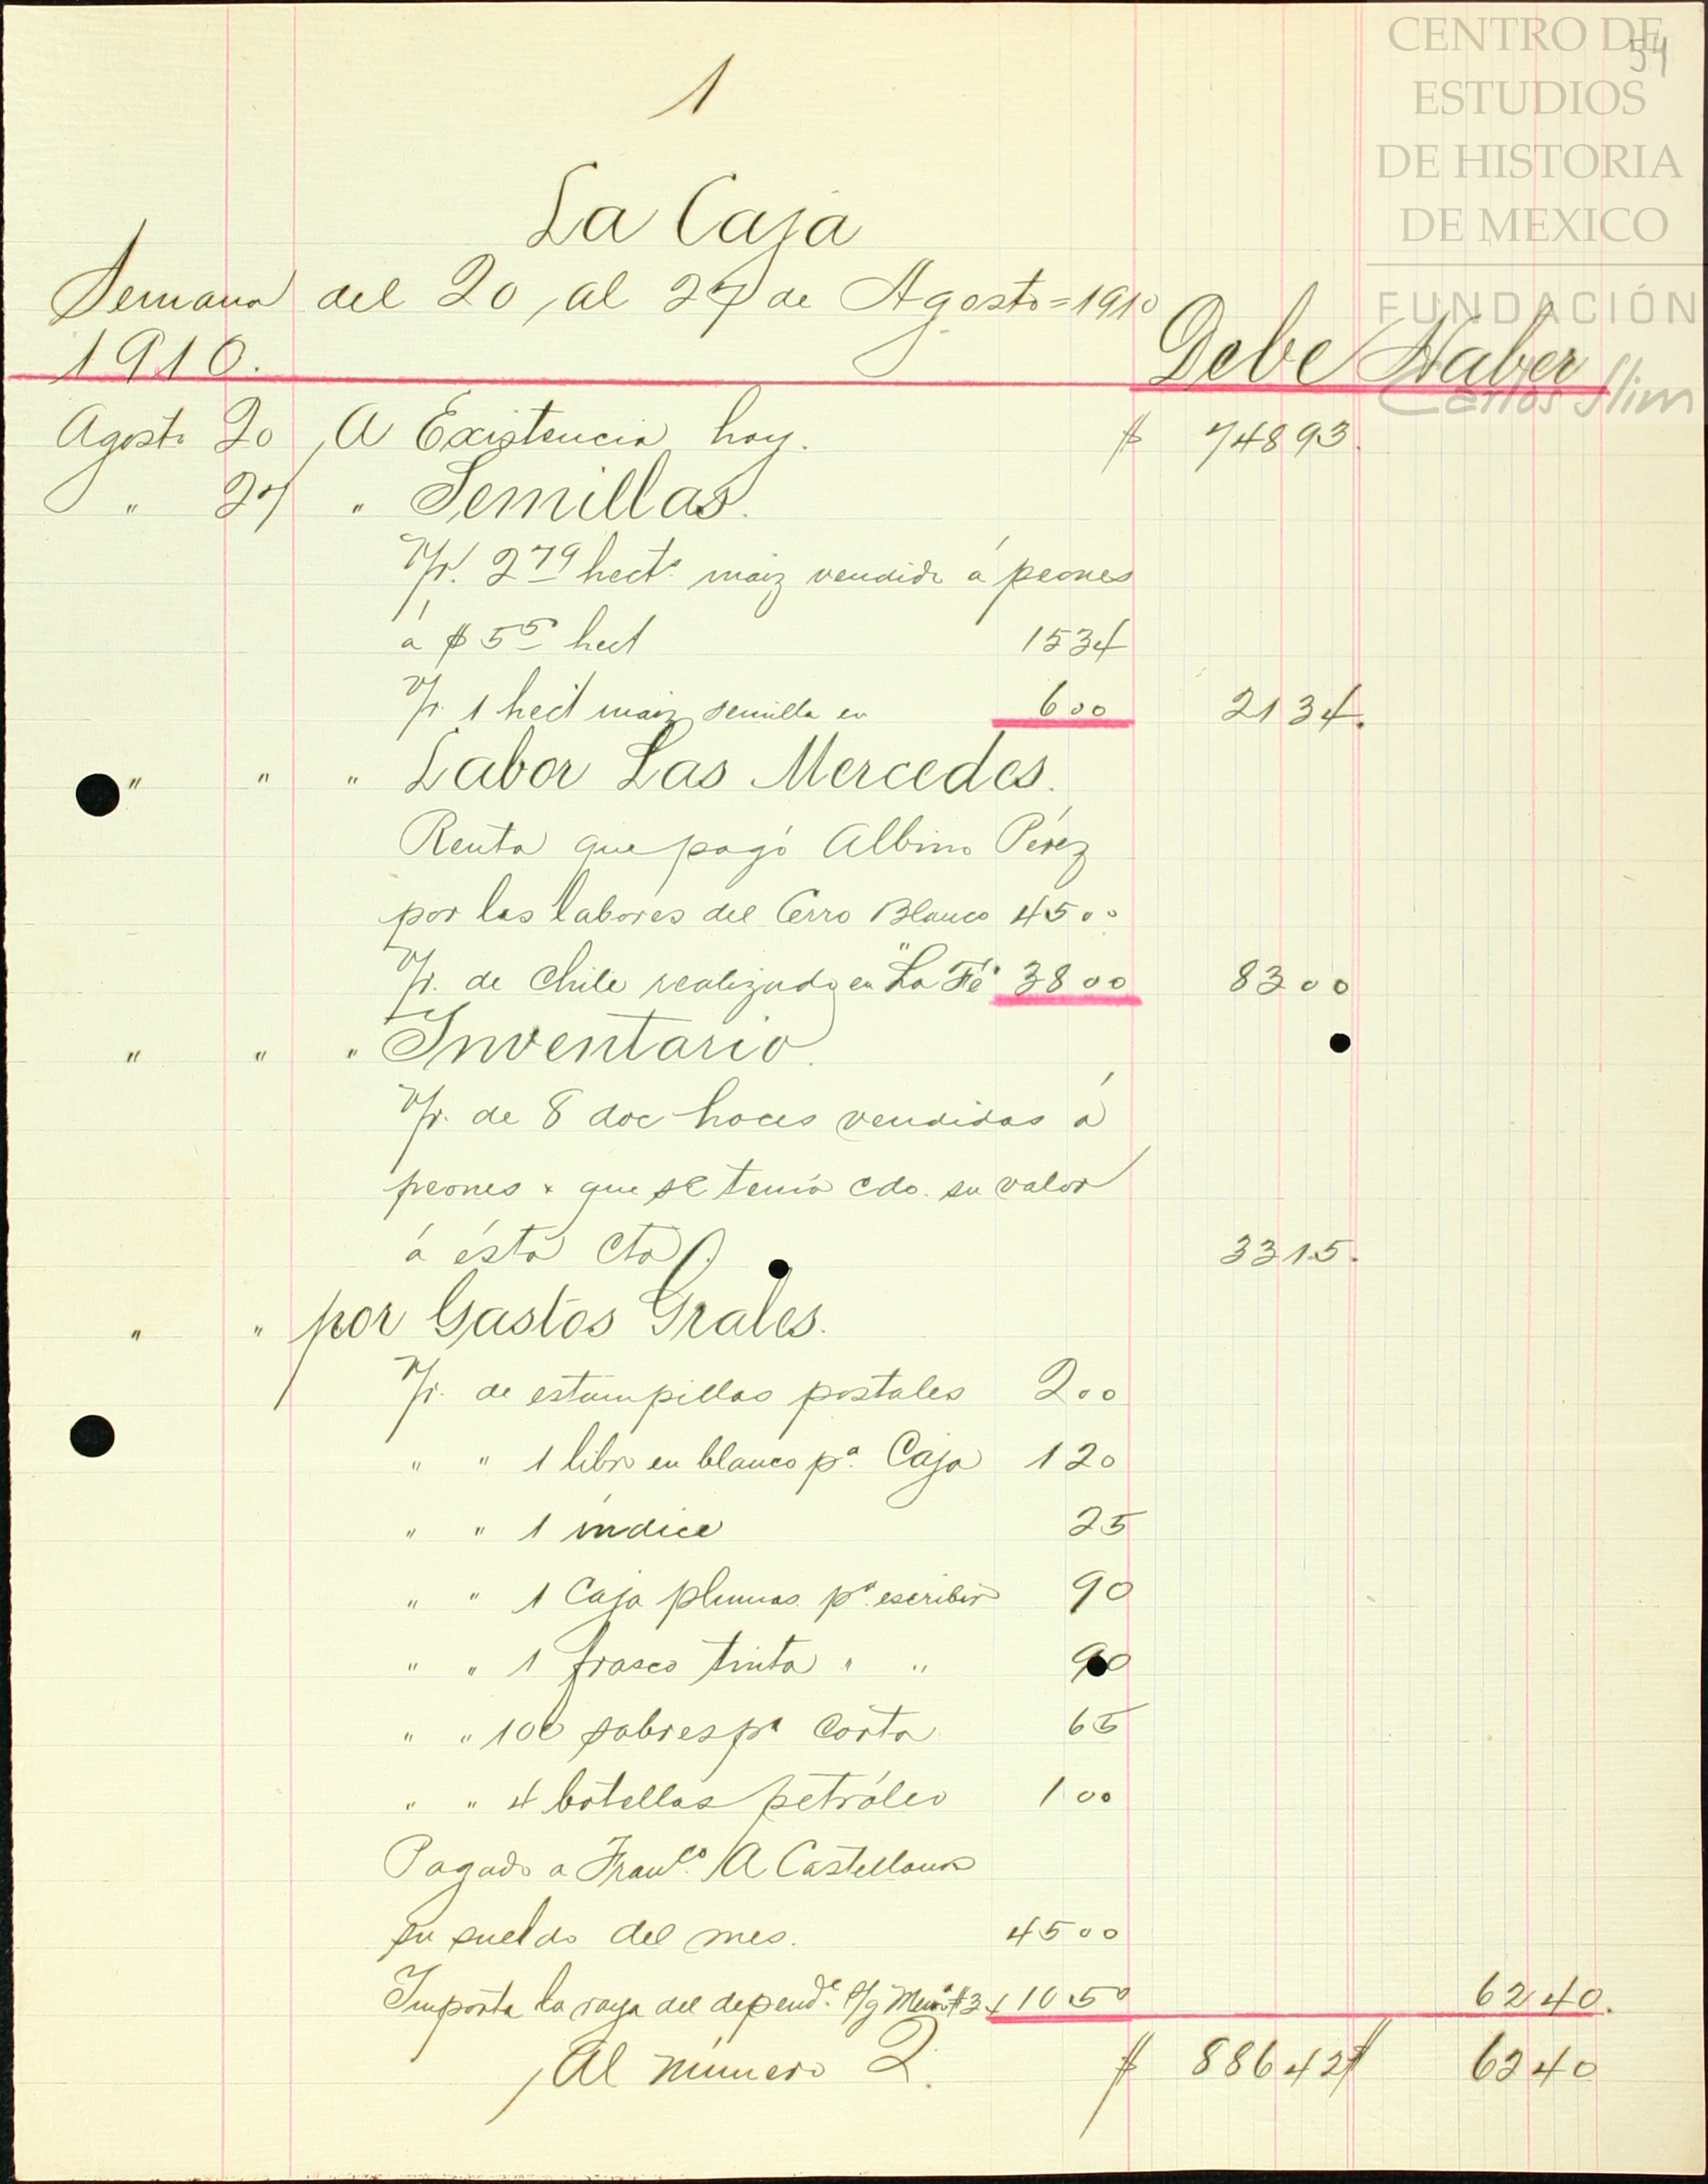 CENTRO DE
ESTUDIOS
DE HISTORIA
DE MEXICO
FUNDACIÓN
Carlos Slim
54
1
La Caja
Semana del 20 al 27 de Agosto=1910
1910. Debe Haber
Agosto 20 A Existencia hoy. $ 748 93.
" 27 " Semillas.
V/r. 2 79 hects. maiz vendido á peones
á $ 5 50 hect 15 34
V/r. 1 hect maiz semilla en 6 00 21 34.
" " " Labor Las Mercedes.
Renta que pagó Albino Pérez
por las labores del Cerro Blanco 45 00
V/r. de Chile realizado en "La Fé" 38 00 83 00
" " " Inventario.
V/r. de 8 doc hoces vendidas á
peones x que se tenía cdo. su valor
á ésta cta. 33 15.
" " por Gastos Grales.
V/r. de estampillas postales 2 00
" " 1 libro en blanco pa. Caja 1 20
" " 1 indice 25
" " 1 Caja plumas pa. escribir 90
" " 1 frasco tinta " " 90
" " 100 sobres pa carta 65
" " 4 botellas petróleo 1 00
Pagado a Franco. A Castellanos
su sueldo del mes. 45 00
Importa la raya del depende. s/g Mem. #34 10 50 62 40.
Al número 2. $ 886 42 $ 62 40